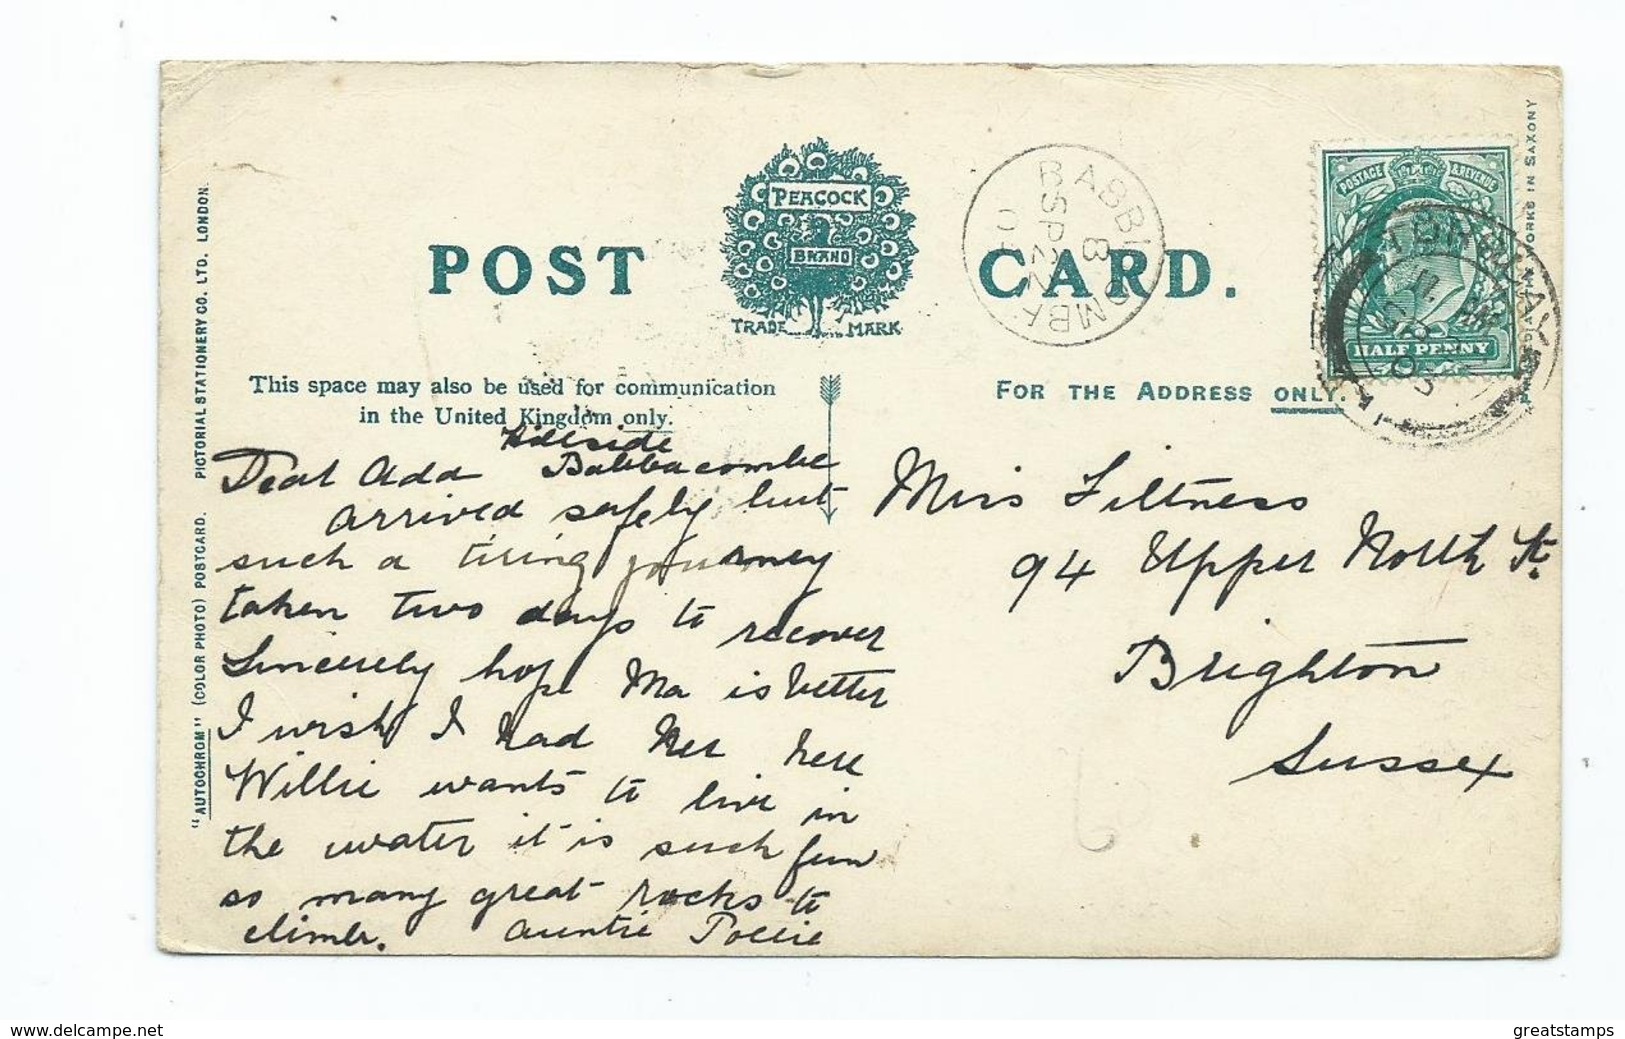 POST CARD.
PEACOCK
BRAND
TRADE MARK
This space may also be used for communication
in the United Kingdom only.
FOR THE ADDRESS ONLY.
POSTAGE & REVENUE
HALF PENNY
TORQUAY
SP 22
"AUTOCHROM" (COLOR PHOTO) POSTCARD. PICTORIAL STATIONERY CO. LTD. LONDON.
WORKS IN SAXONY
Hillside
Dear Ada Babbacombe
arrived safely but
such a tiring journey
taken two days to recover
Sincerely hope Ma is better
I wish I had her here
Willie wants to live in
the water it is such fun
so many great rocks to
climb. Auntie Pollie
Miss Filtness
94 Upper North St.
Brighton
Sussex
www.delcampe.net
greatstamps